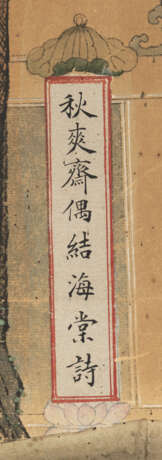 秋爽齋偶結海棠詩